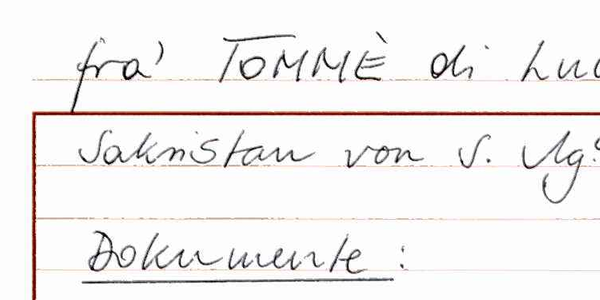 fra' TOMMÈ di
Sakristan von S.
Dokumente: